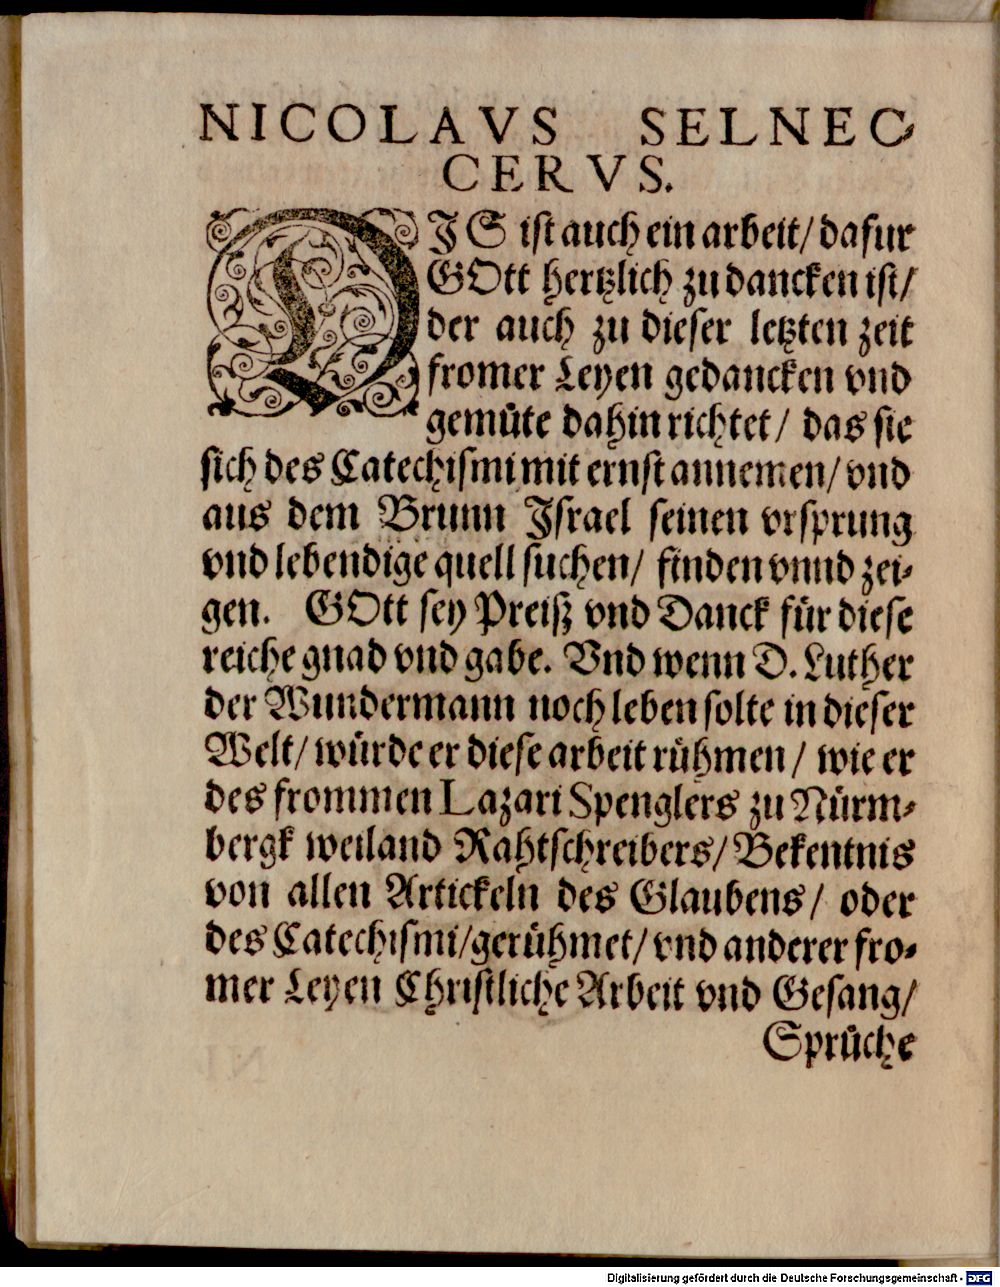 NICOLAVS SELNEC-
CERVS.
DIS ist auch ein arbeit/ dafur
GOtt hertzlich zu dancken ist/
der auch zu dieser letzten zeit
fromer Leyen gedancken vnd
gemüte dahin richtet/ das sie
sich des Catechismi mit ernst annemen/ vnd
aus dem Brunn Jsrael seinen vrsprung
vnd lebendige quell suchen/ finden vnnd zei-
gen. GOtt sey Preiß vnd Danck für diese
reiche gnad vnd gabe. Vnd wenn D. Luther
der Wundermann noch leben solte in dieser
Welt/ würde er diese arbeit rühmen/ wie er
des frommen Lazari Spenglers zu Nürm-
bergk weiland Rahtschreibers/ Bekentnis
von allen Artickeln des Glaubens/ oder
des Catechismi/ gerühmet/ vnd anderer fro-
mer Leyen Christliche Arbeit vnd Gesang/
Sprüche
Digitalisierung gefördert durch die Deutsche Forschungsgemeinschaft - DFG